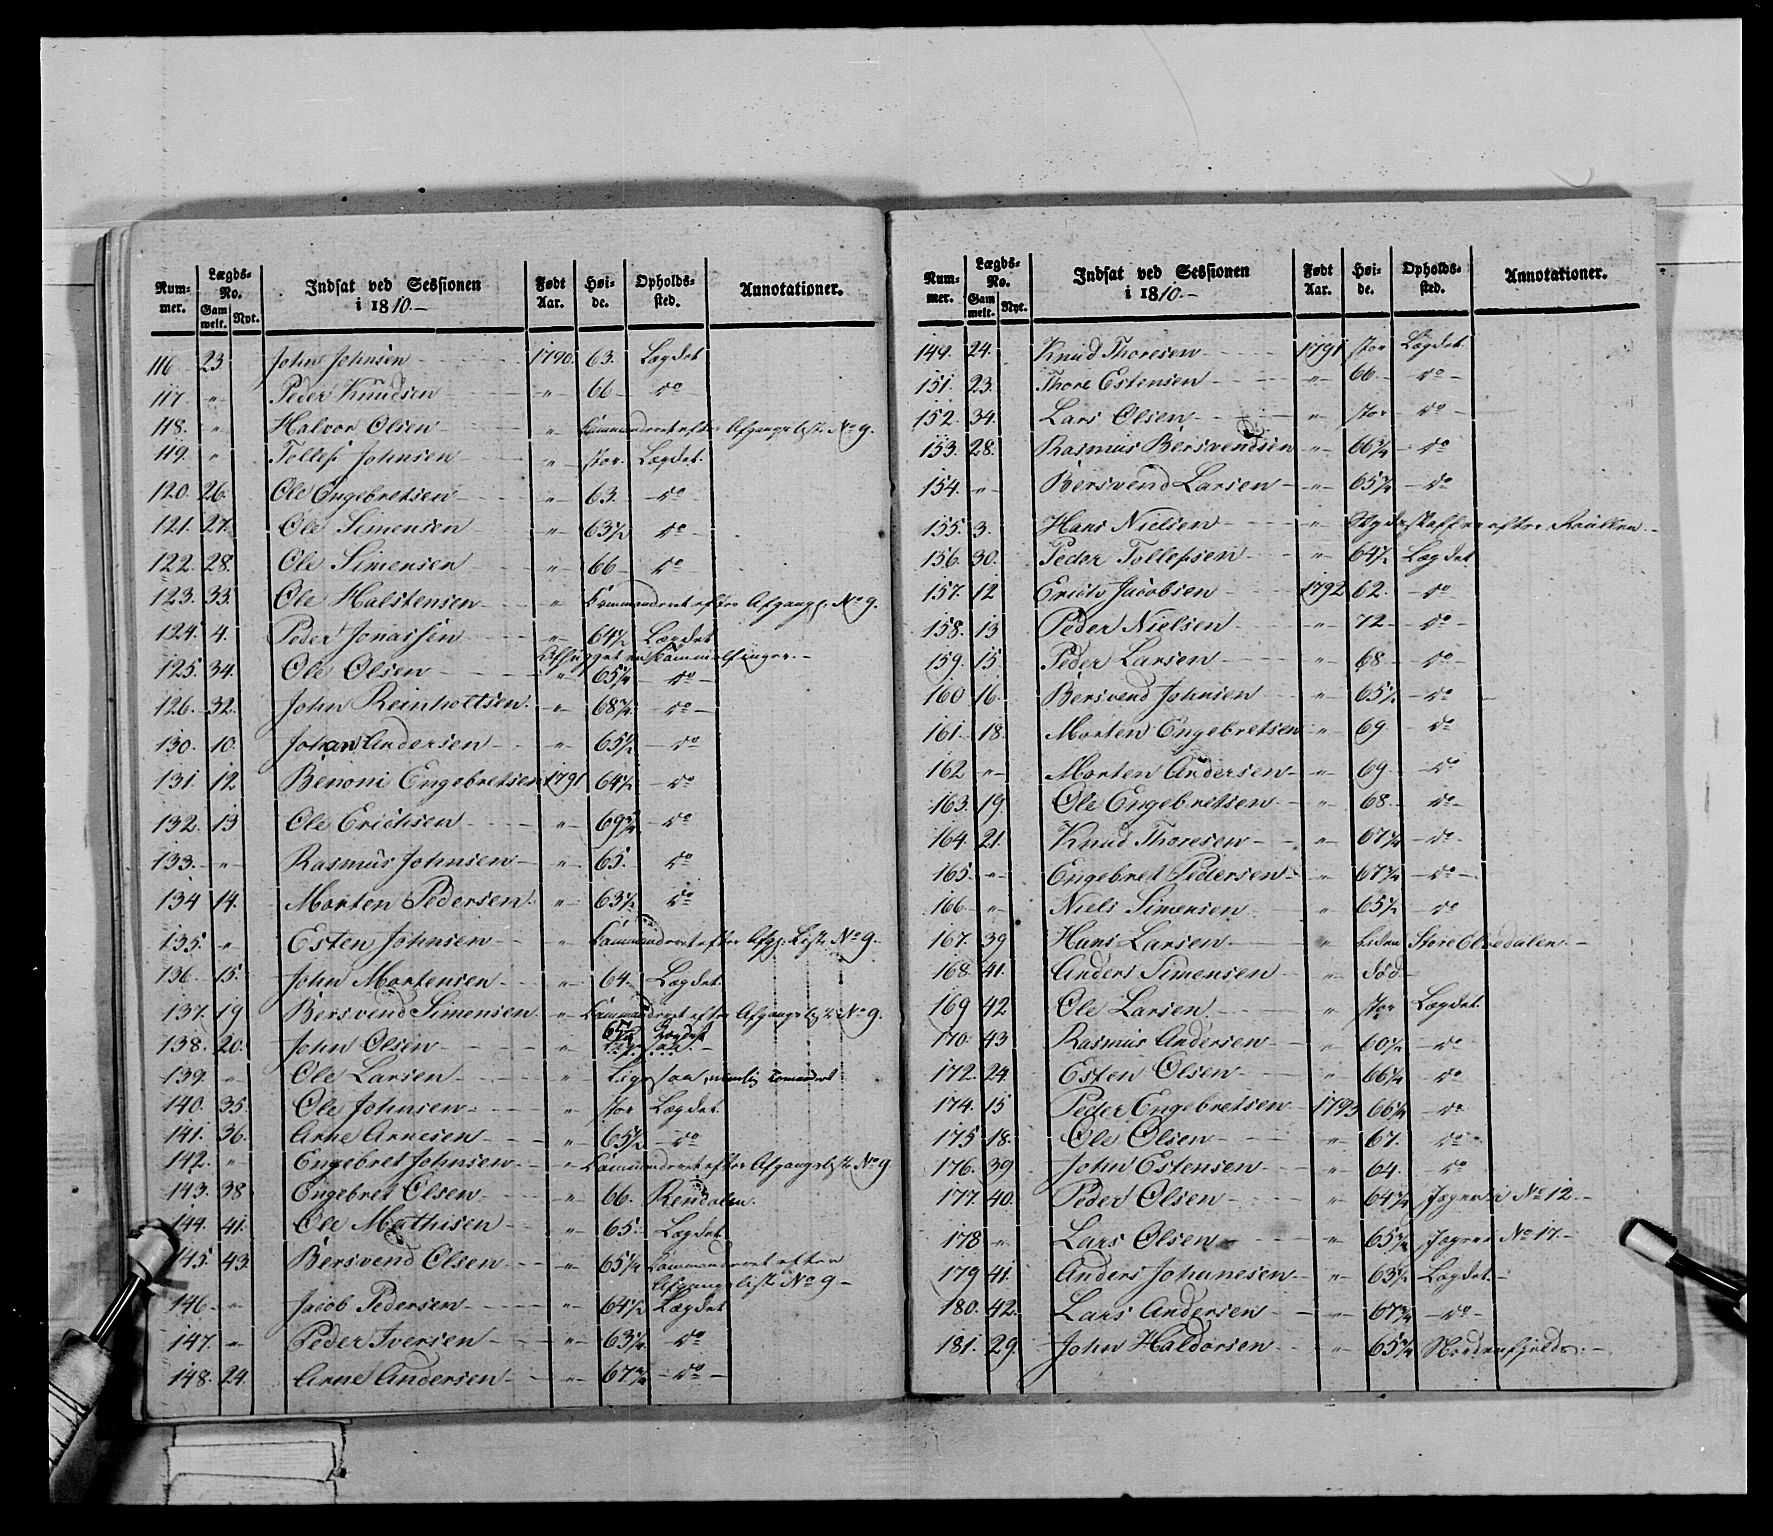 Num- Lægds- Indsat ved Sessionen Født Høi- Opholds- Annotationer.
mer. No. i 1810.- Aar. de. sted.
Gam Nyt.
melt.
116 23 John Johnsen 1790. 63. Lægdet
117. " Peder Knudsen " 66 do
118. " Halvor Olsen " Commanderet efter Afgangsliste No 9.
119. " Tollef Johnsen " stor. Lægdet.
120. 26. Ole Engebretsen " 63. do
121. 27. Ole Simensen " 63½ do
122. 28. Ole Simensen " 66 do
123. 33. Ole Halstensen " Commanderet efter Afgangsl. No 9.
124. 4. Peder Jonassen " 64½ Lægdet
Afhugget en
125. 34. Ole Olsen " 65¼ do
126. 32. John Reinholtsen " 68¾ do
130. 10. Johan Andersen " 65½ do
131. 12. Benoni Engebretsen 1791 64½ do
132. 13 Ole Erichsen " 69¾ do
133. " Rasmus Johnsen " 65. do
134 14. Morten Pedersen " 63½ do
135. " Esten Johnsen " Commanderet efter Afg. Liste No 9.
136. 15. John Mortensen " 64. Lægdet
137. 19 Bersvend Simensen " Commanderet efter Afgangsliste No 9.
138. 20. John Olsen " Lægdet
139. " Ole Larsen " Ligesaa, nemlig Comanderet
140. 35. Ole Johnsen " stor Lægdet
141. 36. Arne Arnesen " 65½ do
142. " Engebret Johnsen " Commanderet efter Afgangsliste No 9
143. 38 Engebret Olsen " 66. Rendalen
144. 41. Ole Mathisen " 65. Lægdet
145. 43. Bersvend Olsen " 65¼ Commanderet efter
Afgangsliste No 9
146 " Jacob Pedersen " 64½ Lægdet
147. " Peder Iversen " 63¼ do
148. 24. Arne Andersen " 67¾ do
Num- Lægds- Indsat ved Sessionen Født Høi- Opholds- Annotationer.
mer. No. i 1810.- Aar. de. sted.
Gam Nyt.
melt.
149. 24. Knud Thoresen 1791 stor Lægdet
151. 23. Thore Estensen " 66. do
152. 34. Lars Olsen " stor do
153. 28. Rasmus Bersvendsen " 66¼ do
154. " Bersvend Larsen " 65¼ do
155. 3. Hans Nielsen " efter Rullen
156. 30. Peder Tollefsen " 64½ Lægdet
157. 12 Erich Jacobsen 1792 62. do
158. 13 Peder Nielsen " 72 do
159. 15 Peder Larsen " 68 do
160 16. Bersvend Johnsen " 65½ do
161. 18. Morten Engebretsen " 69. do
162 " Morten Andersen " 69. do
163. 19. Ole Engebretsen " 68. do
164. 21. Knud Thoresen " 67¼ do
165. " Engebret Pedersen " 67¼ do
166 " Niels Simensen " 65½ do
167. 39 Hans Larsen " Liden Store Elvedalen
168. 41. Anders Simensen " død
169 42 Ole Larsen " stor Lægdet
170. 43 Rasmus Andersen " 60½ do
172. 24. Esten Olsen " 66¼ do
174. 15 Peder Engebretsen 1793 66¼ do
175 18. Ole Olsen " 67. do
176. 39 John Estensen " 64. do
177. 40. Peder Olsen " 64¼ Jægere No 12.
178 " Lars Olsen " 65¾ Jægere No 17.
179 41. Anders Johanesen " 63½ Lægdet
180. 42. Lars Andersen " 67¾ do
181. 29. John Haldorsen " 65¾ Nordenfjelds.